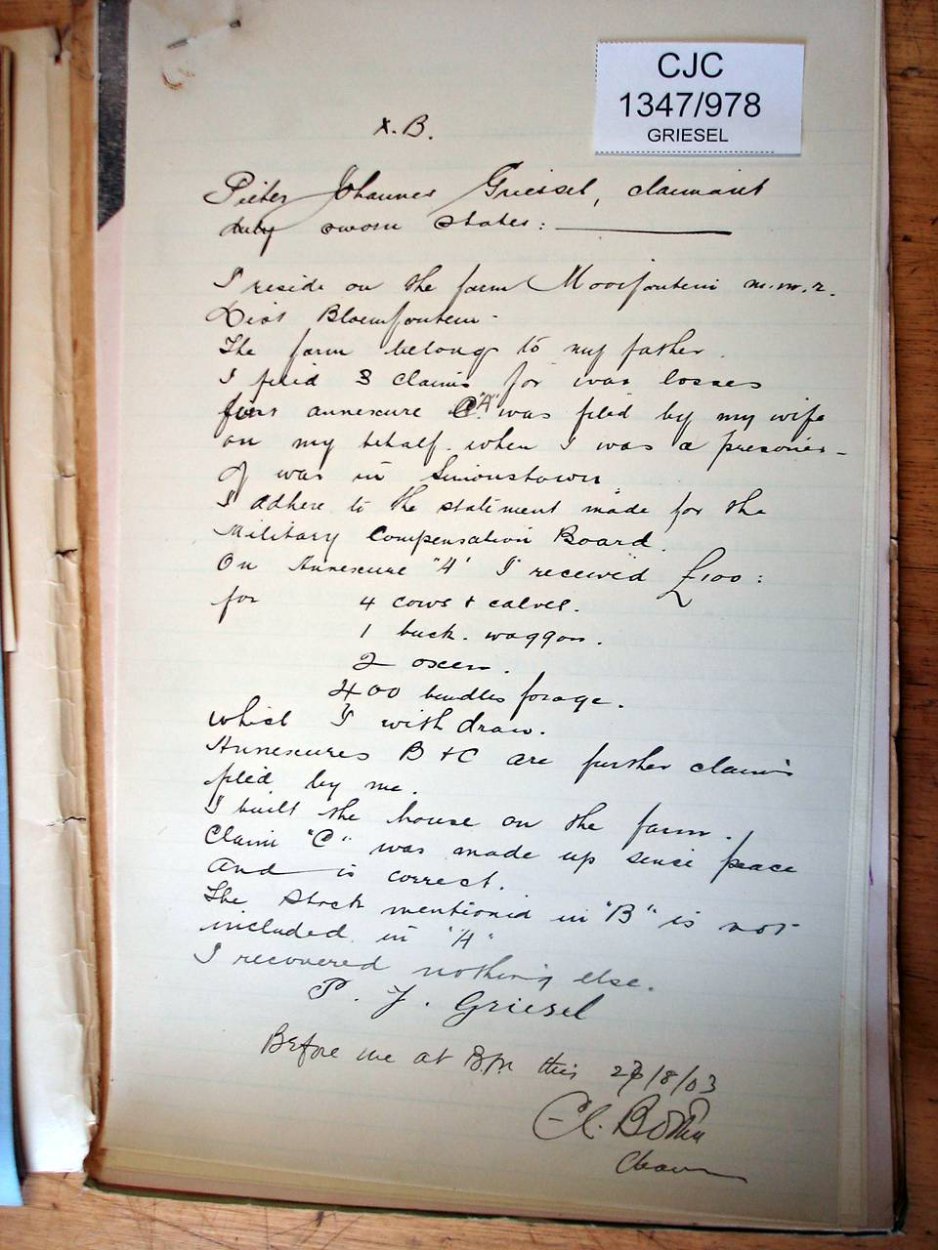 CJC
1347/978
GRIESEL
x. B.
Pieter Johannes Griesel, claimant
duly sworn states:
I reside on the farm Mooifontein m.w.r.
Dist Bloemfontein.
The farm belong to my father.
I filed 3 claims for war losses
first annexure "A" was filed by my wife
on my behalf when I was a presonier
of was in Simonstown
I adhere to the statement made for the
Military Compensation Board.
On Annexure "A" I received £100:
for 4 cows & calves.
1 buck. waggon.
2 oxen.
400 bundles forage.
which I with draw.
Annexures B & C are further claims
filed by me.
I built the house on the farm.
Claim "C" was made up sence peace
and is correct.
The stock mentioned in "B" is not
included in "A"
I recovered nothing else.
P. J. Griesel
Before me at Bfn this /8/03